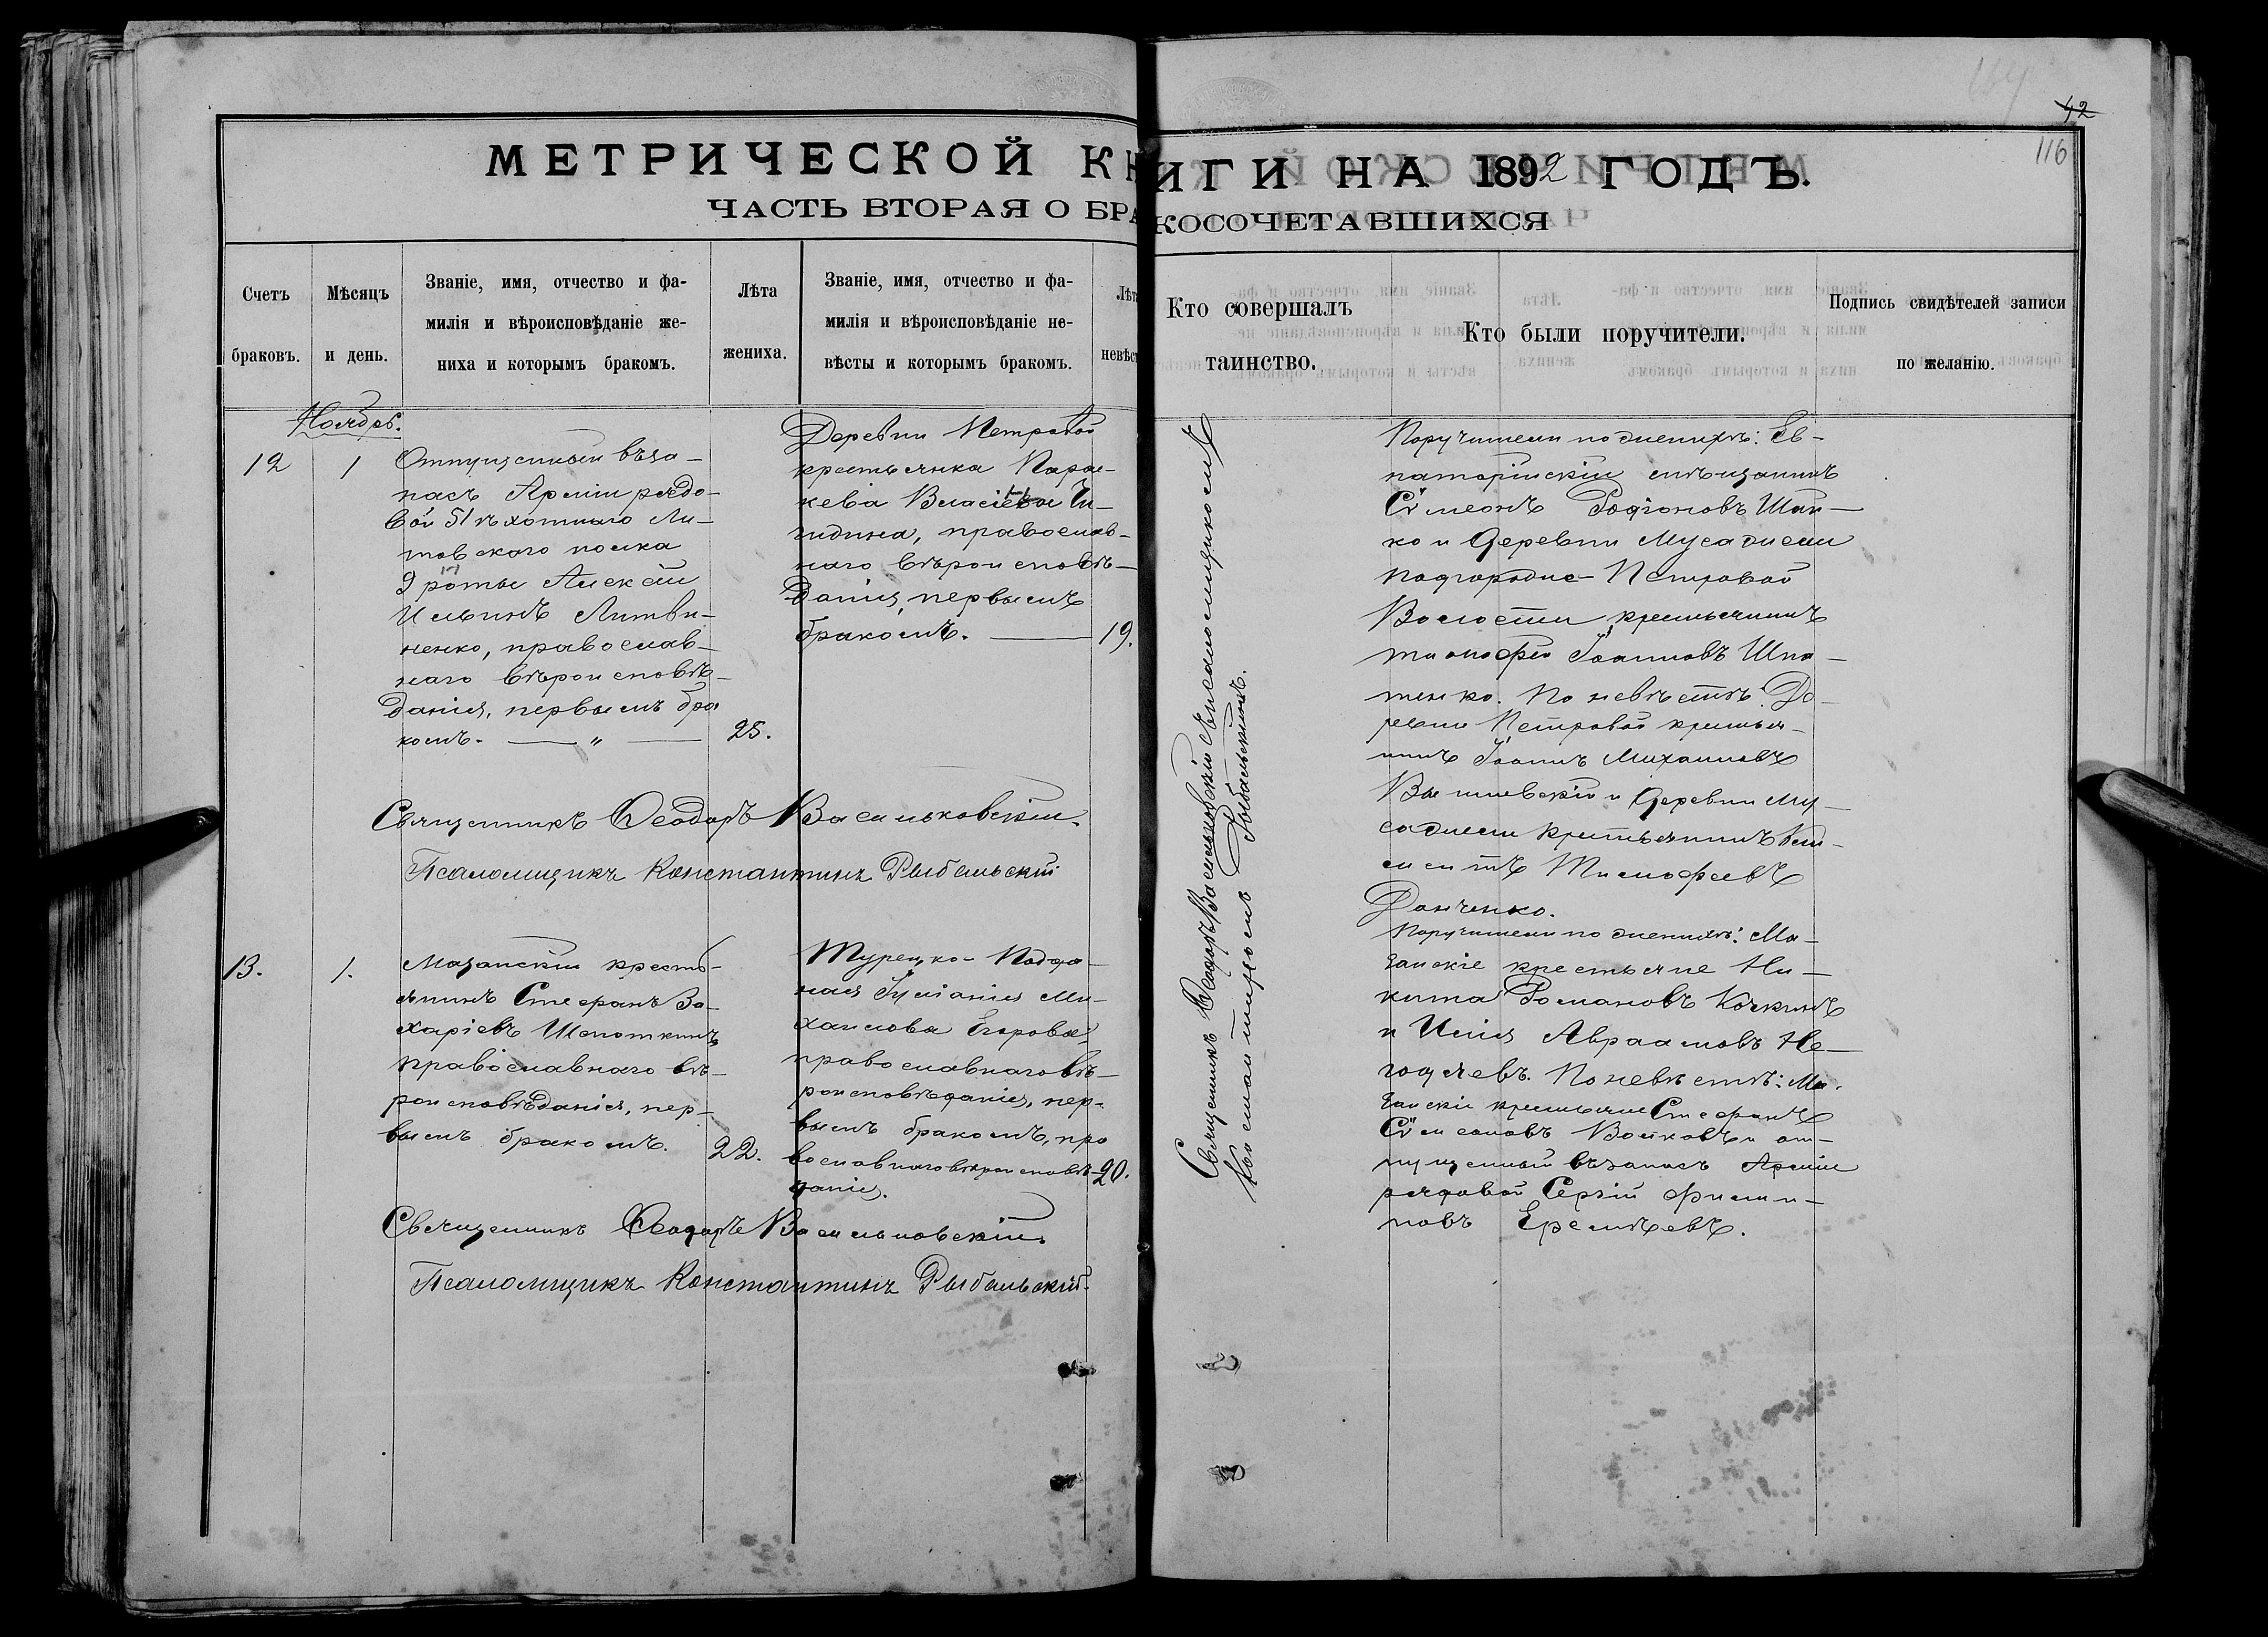 42
116
МЕТРИЧЕСКОЙ КНИГИ НА 1892 ГОДЪ.
ЧАСТЬ ВТОРАЯ О БРАКОСОЧЕТАВШИХСЯ
Счетъ
браковъ.
Мѣсяцъ
и день.
Званіе, имя, отчество и фа-
милія и вѣроисповѣданіе же-
ниха и которымъ бракомъ.
Лѣта
жениха.
Званіе, имя, отчество и фа-
милія и вѣроисповѣданіе не-
вѣсты и которымъ бракомъ.
Лѣта
невѣс
Кто совершалъ
таинство.
Кто были поручители.
Подпись свидѣтелей записи
по желанію.
Ноябрь.
12
1
Отпущенный въ за-
пасъ Арміи рядо-
вой 51 пѣхотнаго Ли-
товскаго полка
9 роты Алексій
Ильинъ Литви-
ненко, православ-
наго вѣроисповѣ-
данія, первымъ бра
комъ. — „ —
25.
Деревни Петровой
крестьянка Парас-
кева Власіева Чи-
гидина, православ-
наго вѣроисповѣ-
данія, первымъ
бракомъ. —
19.
Священникъ Ѳеодоръ Васильковскій съ псаломщикомъ
Константиномъ Рыбальскимъ.
Поручители по женихѣ: Ев-
паторійскій мѣщанинъ
Сѵмеонъ Родіоновъ Шап-
ко и деревни Мусажеми
Подгородне-Петровой
Волости крестьянинъ
Тимофей Іоанновъ Шпа-
тенко. По невѣстѣ: Де-
ревни Петровой крестья-
нинъ Іоаннъ Михаиловъ
Вышневскій и деревни Му-
сажеми крестьянинъ
Тимофеевъ
Данченко.
Священникъ Ѳеодоръ Васильковскій.
Псаломщикъ Константинъ Рыбальскій
13.
1.
Мазанскій кресть-
янинъ Стефанъ За-
харіевъ Шепоткинъ,
православнаго вѣ-
роисповѣданія, пер-
вымъ бракомъ.
22.
Турецко-Поддан-
ная Іуліанія Ми-
хаилова Егорова,
православнаго вѣ-
роисповѣданія, пер-
вымъ бракомъ, пра
вославнаго вѣроисповѣ-
данія.
20.
Поручители по женихѣ: Ма-
занскіе крестьяне Ни-
кита Романовъ Кочкинъ
и Илія Авраамовъ Не-
годяевъ. По невѣстѣ: Ма-
занскіе крестьяне Стефанъ
Сѵмеоновъ Волковъ и от-
пущенный въ запасъ Арміи
рядовой Сергій Филип-
повъ Еремѣевъ.
Священникъ Ѳеодоръ Васильковскій.
Псаломщикъ Константинъ Рыбальскій.